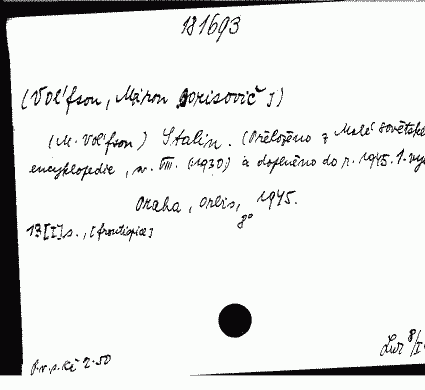 181693
(Vol'fson, Miron Borisovič J)
(M. Vol'fson) Stalin. (Přeloženo z Malé sovětské
encyklopedie, sv. VIII. (1930) a doplněno do r. 1945. 1. vyd
Praha, Orbis, 1945.
8°
13[I]s., [frontispice]
P.v.p. Kč 2.50
8/I